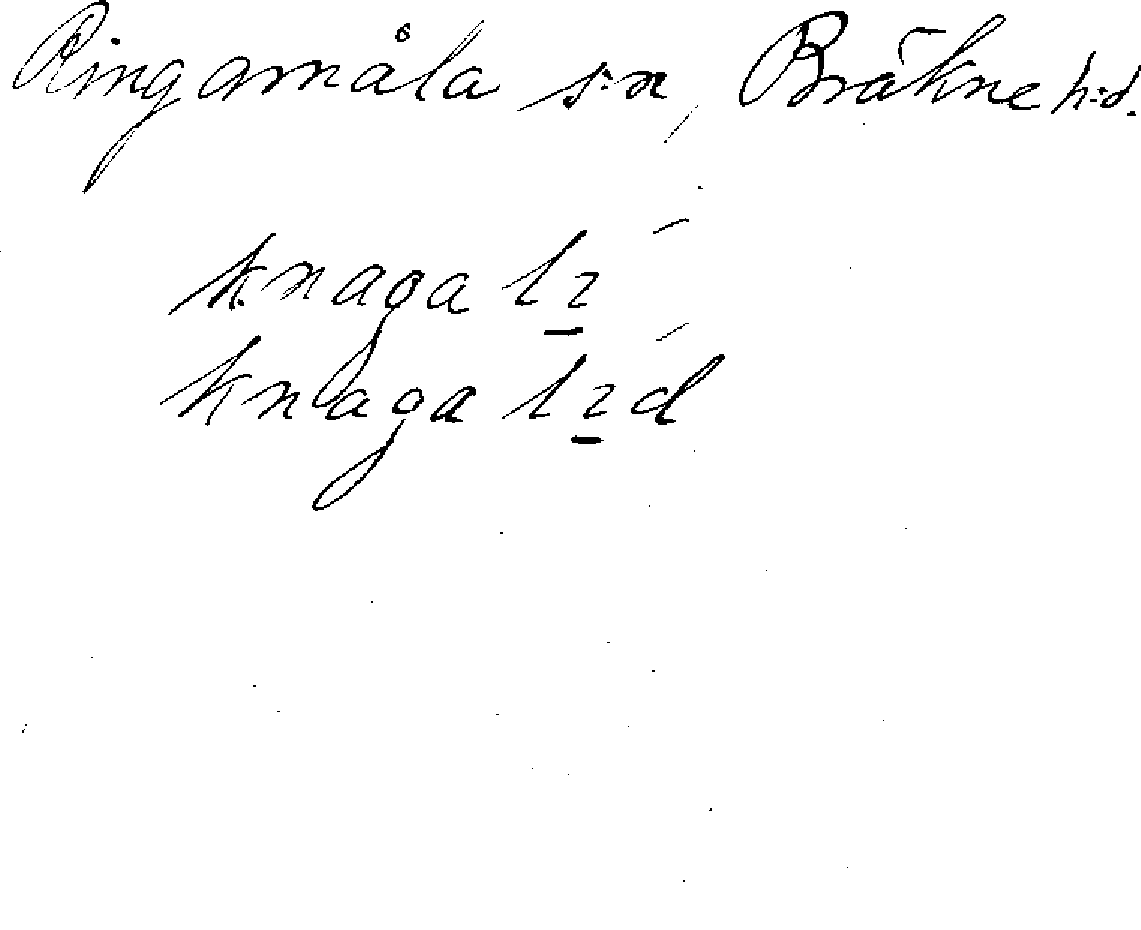 Ringamåla s:n, Bräkne h:d.
knaga
knaga